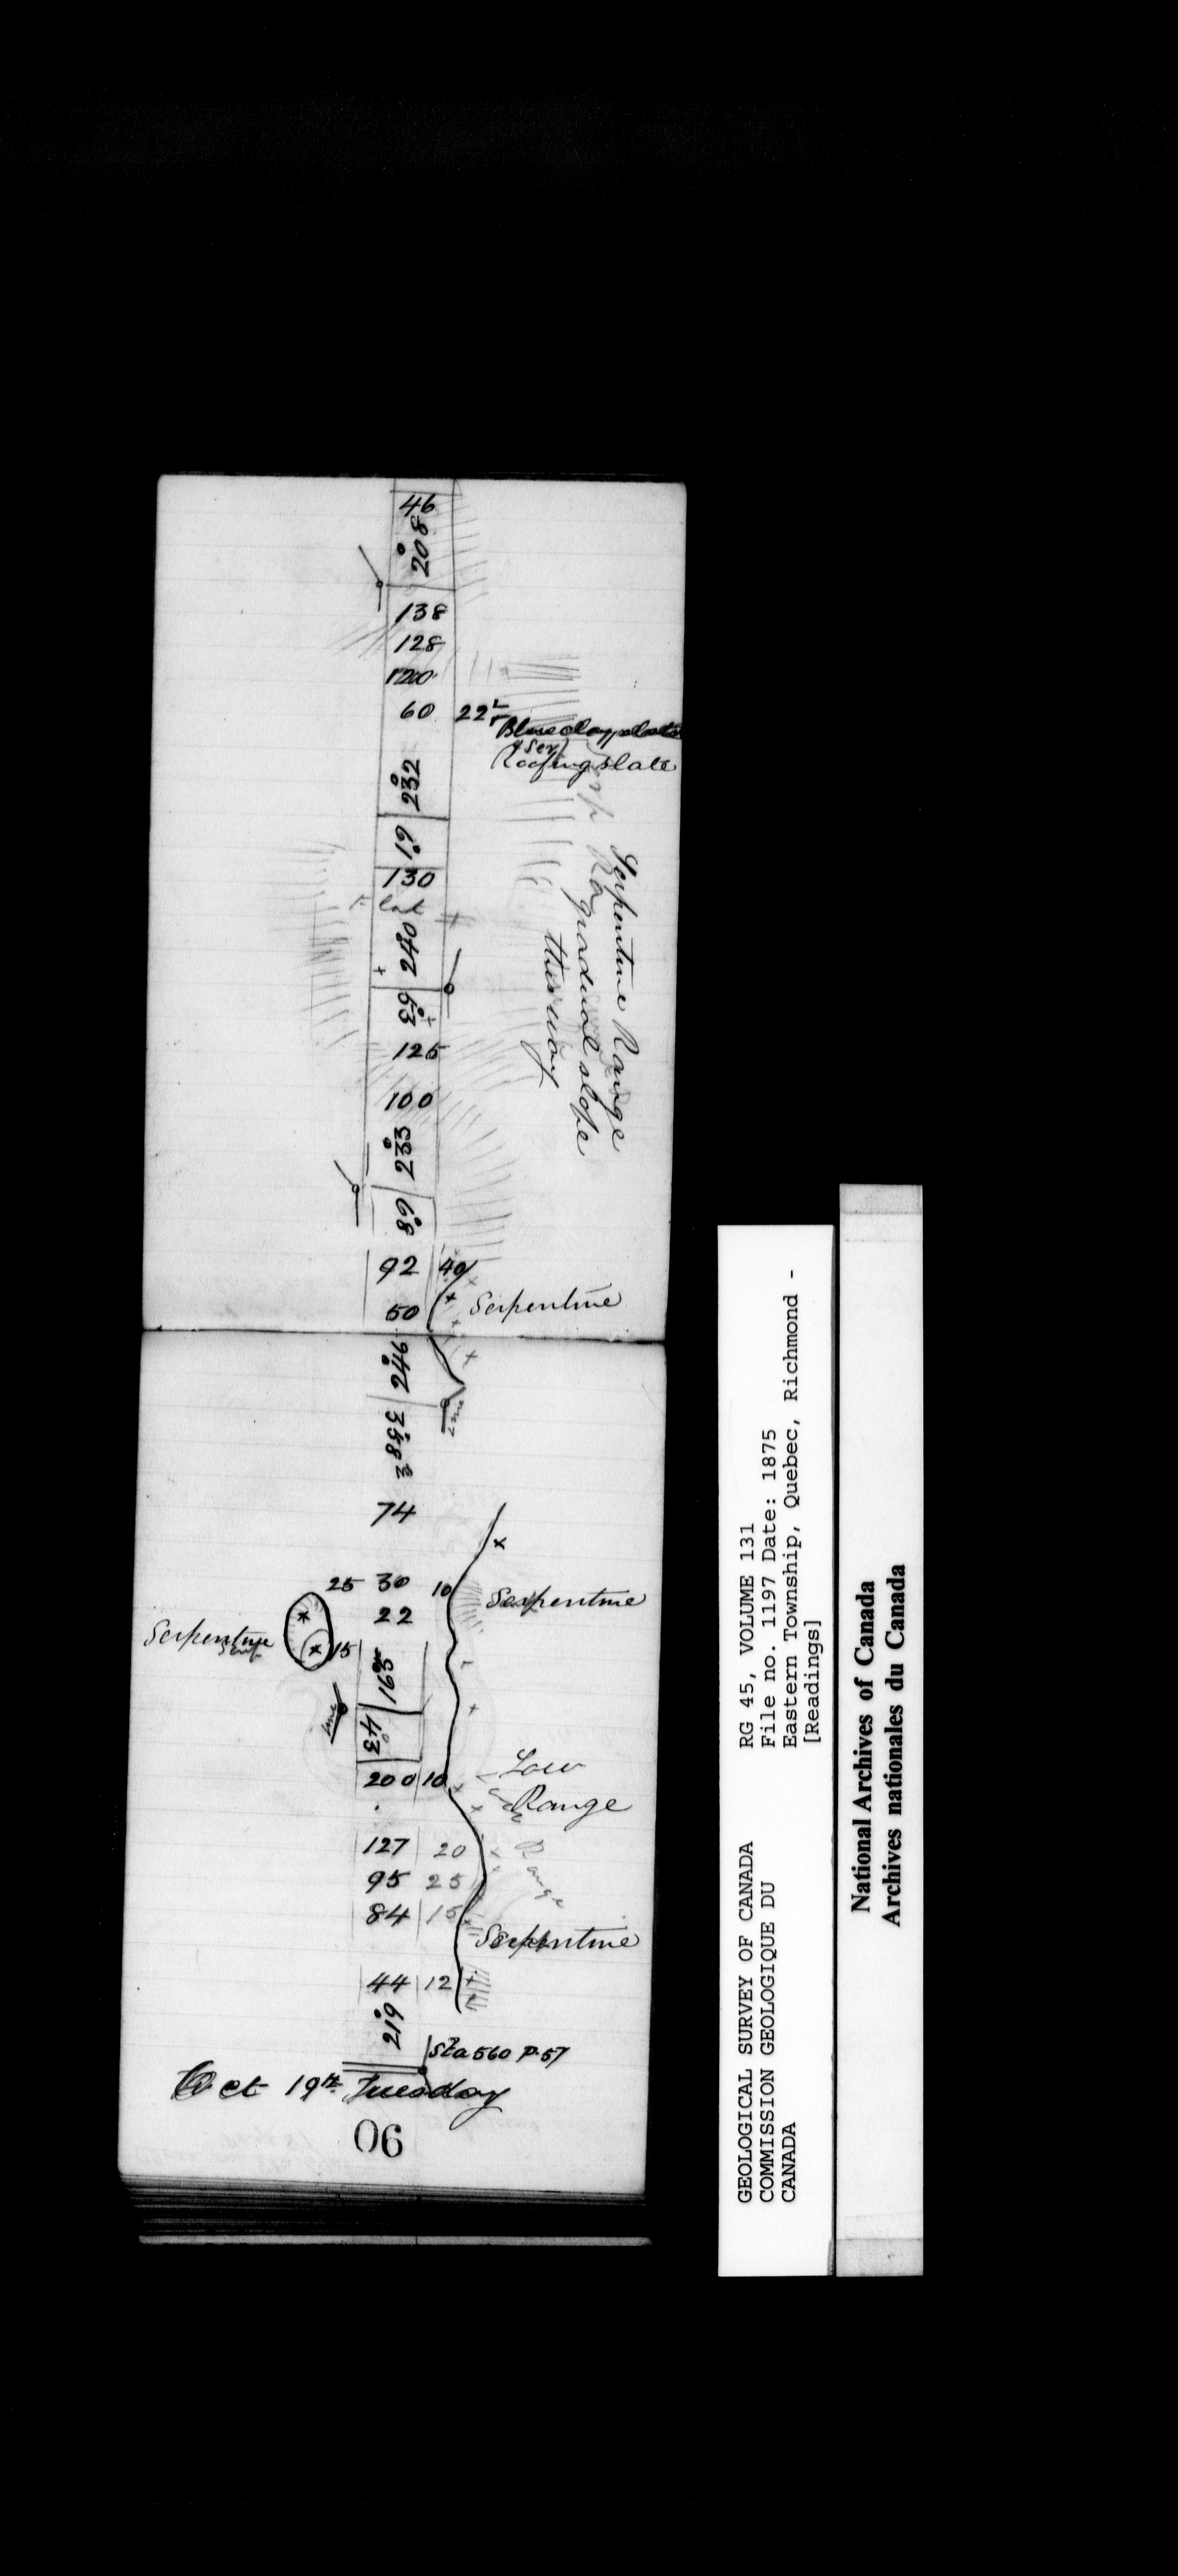 46
208°
138
128
120
60 22
Blue clay slate
& Ser
Roofing slate
232°
61°
130
Flat
240°
63°
125
100
233°
68°
Serpentine Range
gradual slope
this way
92 40
50
Serpentine
246°
74
25 30 10
22
Serpentine
Serpentine
Serp
15
165°
line
43°
200 10
Low
Range
127 20
95 25
84 15
Range
Serpentine
44 12
219°
Sta 560 P. 57
Oct 19th Tuesday
90
RG 45, VOLUME 131
File no. 1197 Date: 1875
Eastern Township, Quebec, Richmond -
[Readings]
GEOLOGICAL SURVEY OF CANADA
COMMISSION GEOLOGIQUE DU
CANADA
National Archives of Canada
Archives nationales du Canada